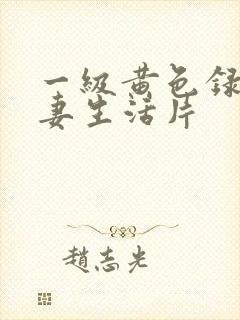 一級黄色録
妻生活片
趙志光